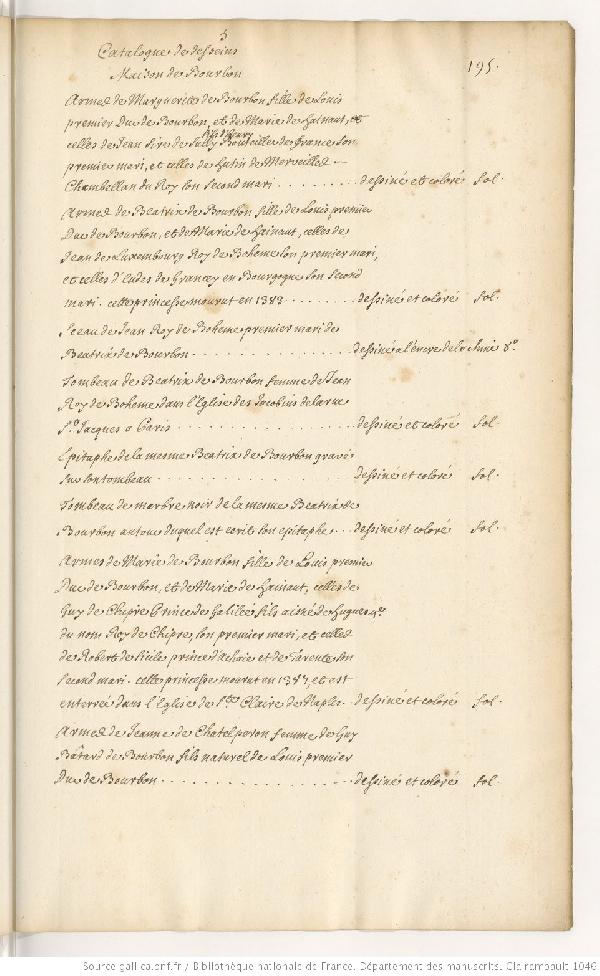 5
Catalogue de desseins
Maison de Bourbon
195.
Armes de Marguerite de Bourbon fille de Louis
premier Duc de Bourbon, et de Marie de Hainaut, et
celles de Jean Sire de Sully Bouteiller de france son
premier mari, et celles de Hutin de Mervelles
Chambellan du Roy son Second mari ........ dessiné et coloré fol.
Armes de Beatrix de Bourbon fille de Louis premier
Duc de Bourbon, et de Marie de Hainaut, celles de
Jean de Luxembourg Roy de Boheme son premier mari,
et celles d'Eudes de Grancey en Bourgogne son Second
mari. cette princesse mourut en 1383 ....... dessiné et coloré fol.
Sceau de Jean Roy de Boheme premier mari de
Beatrix de Bourbon ............... dessiné a l'encre de la Chine 8°.
Tombeau de Beatrix de Bourbon femme de Jean
Roy de Boheme dans l'Eglise des Jacobins de la rue
St. Jacques a Paris ............... dessiné et coloré fol.
Epitaphe de la mesme Beatrix de Bourbon gravé
sur son tombeau ................. dessiné et coloré fol.
Tombeau de marbre noir de la mesme Beatrix de
Bourbon autour duquel est ecrit son epitaphe ... dessiné et coloré fol.
Armes de Marie de Bourbon fille de Louis premier
Duc de Bourbon, et de Marie de Hainaut, celles de
Guy de Chipre Prince de Galilée fils aisné de Hugues 4e.
du nom Roy de Chipre, son premier mari, et celles
de Robert de Sicile prince d'achaie et de Tarente son
Second mari. cette princesse mourut en 1387, et est
enterrée dans l'Eglise de Ste. Claire de Naples . dessiné et coloré fol.
Armes de Jeanne de Chatelperon femme de Guy
Bâtard de Bourbon fils naturel de Louis premier
Duc de Bourbon .................. dessiné et coloré fol.
Source gallica.bnf.fr / Bibliothèque nationale de France. Département des manuscrits. Clairambault 1046